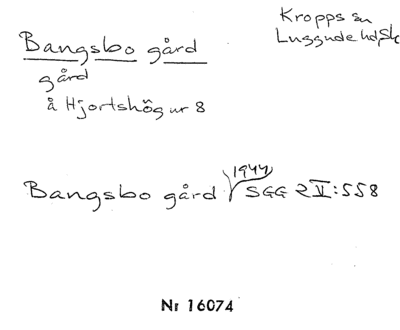 Kropps sn
Luggude hd, Sk
Bangsbo gård
gård
å Hjortshög nr 8
1944
Bangsbo gård SGG 2 V:558
Nr 16074